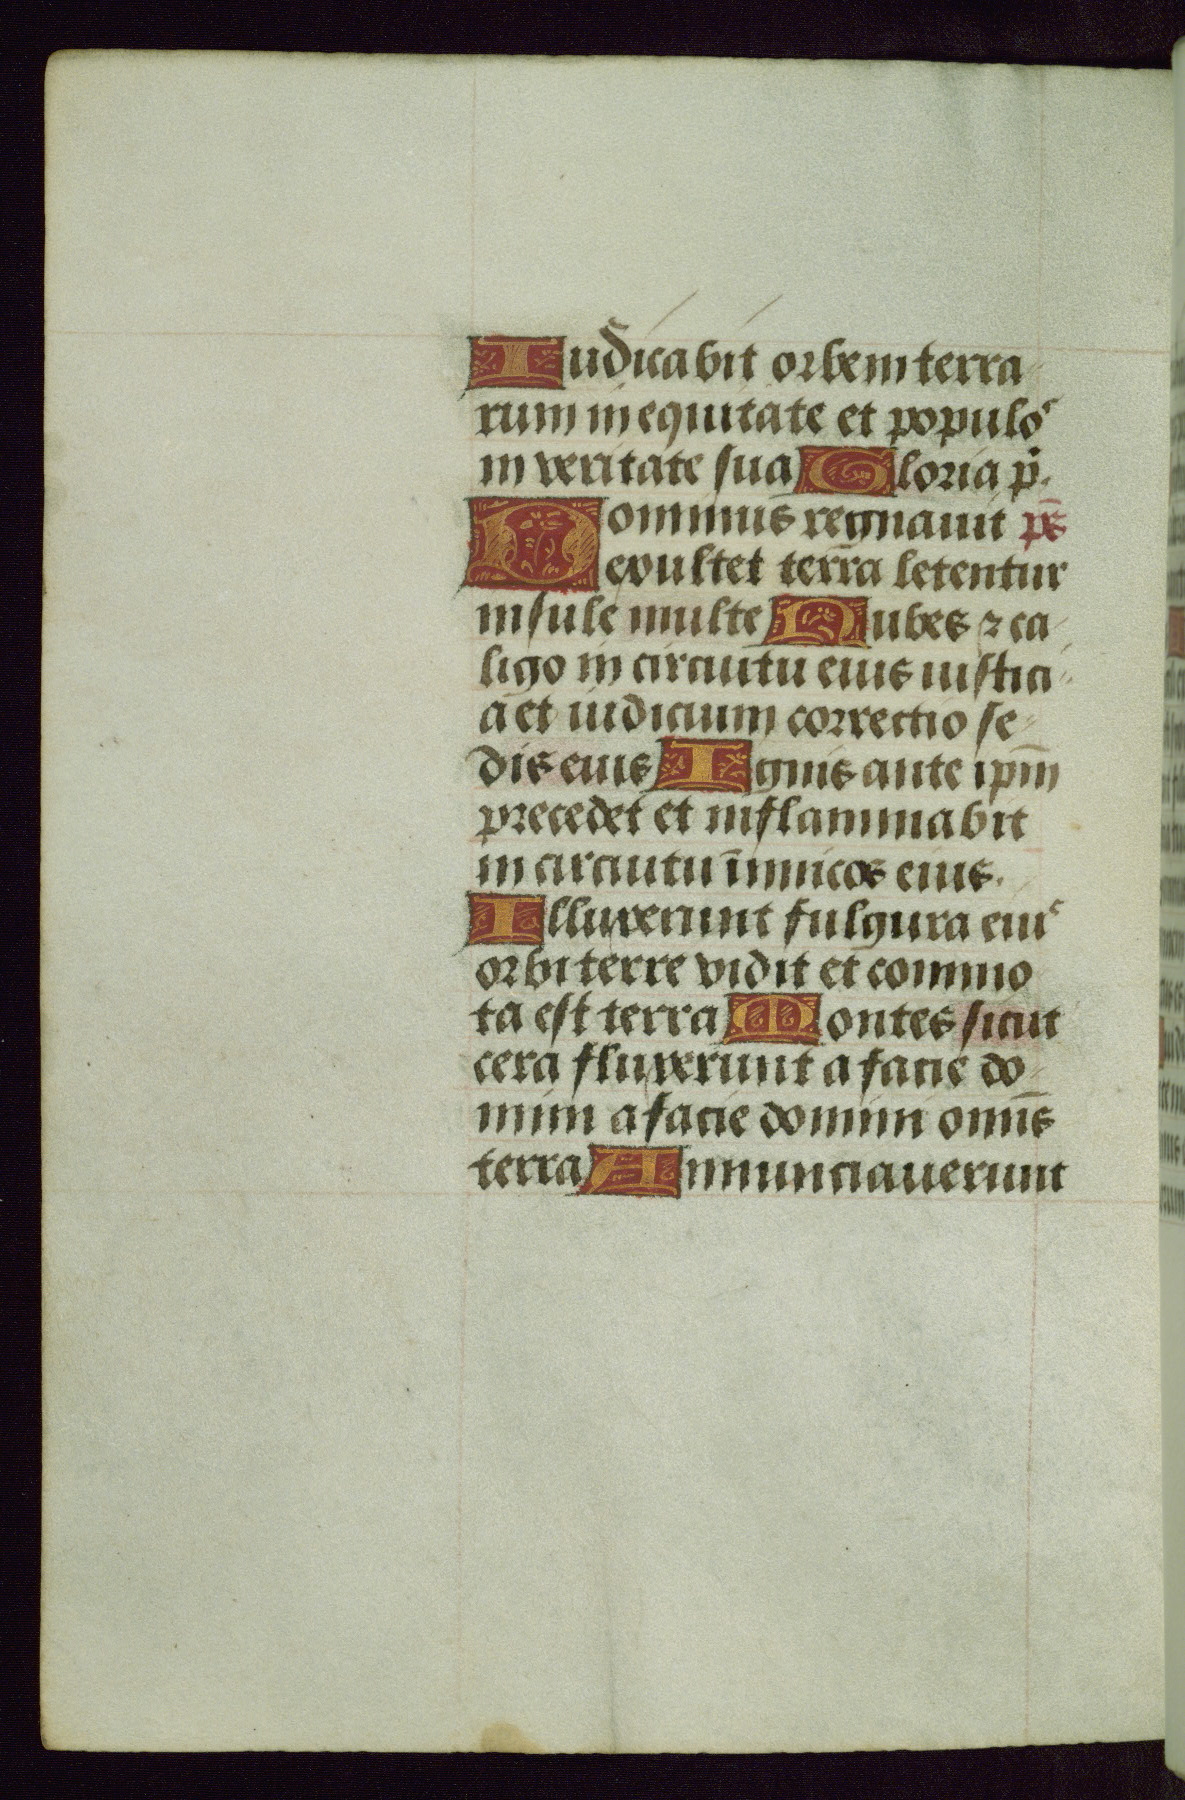 Iudicabit orbem terra
rum in equitate et populos
in veritate sua Gloria p̄.
Dominus regnavit ps̄
exultet terra letentur
insule multe Nubes ⁊ ca
ligo in circuitu eius iustici
a et iudicium correctio se
dis eius Ignis ante ip̄m
precedet et inflammabit
in circuitu inimicos eius.
Illuxerunt fulgura eius
orbi terre vidit et commo
ta est terra Montes sicut
cera fluxerunt a facie do
mini a facie domini omīs
terra Annunciaverunt